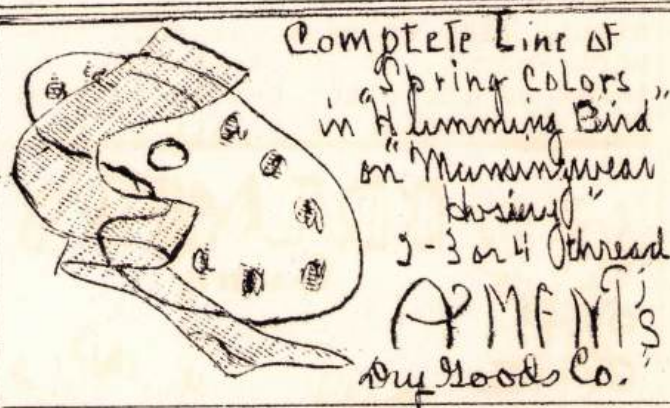 Complete Line of
Spring Colors
in "Humming Bird"
or "Munsingwear
Hosiery"
2-3 or 4 thread
AMENT's
Dry Goods Co.